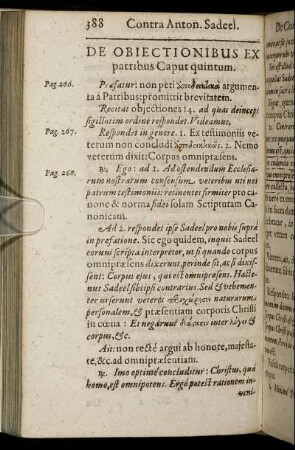 388 Contra Anton. Sadeel.
DE OBIECTIONIBUS EX
patribus Caput quintum.
Pag. 266. Præfatur: non peti argumenta
à Patribus: promittit brevitatem.
Recitat objectiones 14. ad quas deinceps
sigillatim ordine respondet. Videamus.
Pag. 267. Respondet in genere. 1. Ex testimoniis ve-
terum non concludi 2. Nemo
veterum dixit: Corpus omnipræsens.
Pag. 268. Ego: ad 1. Ad ostendendum Ecclesia-
rum nostrarum consensum veteribus utimur
patrum testimoniis: retinentes firmiter pro ca-
none & norma fidei solam Scripturam Ca-
nonicam.
Ad 2. respondet ipse Sadeel pro nobis supra
in præfatione. Sic ego quidem, inquit Sadeel
eorum scripta interpretor, ut si quando corpus
omnipræsens dixerunt, perinde sit, ac si dixis-
sent: Corpus ejus, qui est omnipræsens. Hacte-
nus Sadeel sibi ipsi contrarius. Sed & vehemen-
ter urserunt veteres naturarum
personalem, & præsentiam corporis Christi
in cœna: Et negarunt inter &
corpus, &c.
Ait: non rectè argui ab honore, majesta-
te, &c. ad omnipræsentiam.
Imo optimè concluditur: Christus, quà
homo, est omnipotens. Ergò potest rationem in-
veni-